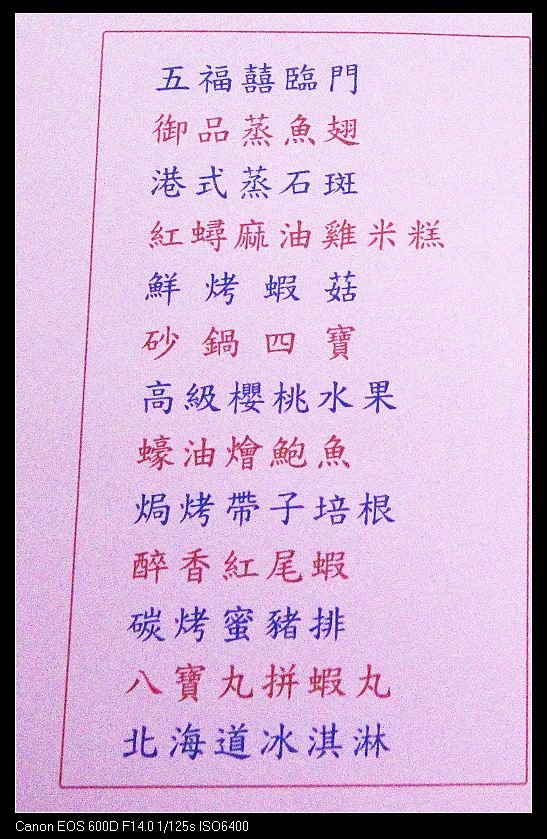 五福囍臨門
御品蒸魚翅
港式蒸石斑
紅蟳麻油雞米糕
鮮烤蝦菇
砂鍋四寶
高級櫻桃水果
蠔油燴鮑魚
焗烤帶子培根
醉香紅尾蝦
碳烤蜜豬排
八寶丸拼蝦丸
北海道冰淇淋
Canon EOS 600D F14.0 1/125s ISO6400